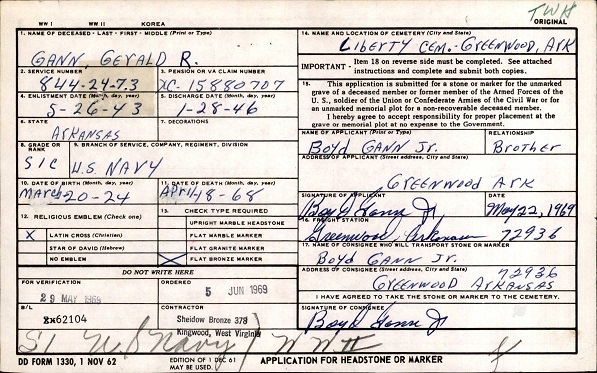 WW I WW II KOREA
TWH
ORIGINAL
1. NAME OF DECEASED - LAST - FIRST - MIDDLE (Print or Type)
GANN, GERALD R.
14. NAME AND LOCATION OF CEMETERY (City and State)
LIBERTY CEM.- GREENWOOD, ARK
2. SERVICE NUMBER
844-24-73
3. PENSION OR VA CLAIM NUMBER
XC-15880707
IMPORTANT - Item 18 on reverse side must be completed. See attached
instructions and complete and submit both copies.
4. ENLISTMENT DATE (Month, day, year)
5-26-43
5. DISCHARGE DATE (Month, day, year)
1-28-46
15. This application is submitted for a stone or marker for the unmarked
grave of a deceased member or former member of the Armed Forces of the
U. S., soldier of the Union or Confederate Armies of the Civil War or for
an unmarked memorial plot for a non-recoverable deceased member.
I hereby agree to accept responsibility for proper placement at the
grave or memorial plot at no expense to the Government.
6. STATE
ARKANSAS
7. DECORATIONS
8. GRADE OR RANK
S1C
9. BRANCH OF SERVICE, COMPANY, REGIMENT, DIVISION
U.S. NAVY
NAME OF APPLICANT (Print or Type)
BOYD GANN JR.
RELATIONSHIP
BROTHER
10. DATE OF BIRTH (Month, day, year)
March 20-24
11. DATE OF DEATH (Month, day, year)
April 18-68
ADDRESS OF APPLICANT (Street address, City and State)
GREENWOOD ARK
12. RELIGIOUS EMBLEM (Check one)
X LATIN CROSS (Christian)
STAR OF DAVID (Hebrew)
NO EMBLEM
13. CHECK TYPE REQUIRED
UPRIGHT MARBLE HEADSTONE
FLAT MARBLE MARKER
FLAT GRANITE MARKER
X FLAT BRONZE MARKER
SIGNATURE OF APPLICANT
Boyd Gann Jr
DATE
May 22, 1969
16. FREIGHT STATION
Greenwood, Arkansas 72936
17. NAME OF CONSIGNEE WHO WILL TRANSPORT STONE OR MARKER
BOYD GANN JR.
DO NOT WRITE HERE
ADDRESS OF CONSIGNEE (Street address, City and State)
72936
GREENWOOD ARKANSAS
FOR VERIFICATION
29 MAY 1969
ORDERED
5 JUN 1969
I HAVE AGREED TO TAKE THE STONE OR MARKER TO THE CEMETERY.
B/L
62104
CONTRACTOR
Sheidow Bronze 378
Kingwood, West Virginia
SIGNATURE OF CONSIGNEE
Boyd Gann Jr
S1 Navy WW II
DD FORM 1330, 1 NOV 62
EDITION OF 1 DEC 61
MAY BE USED.
APPLICATION FOR HEADSTONE OR MARKER